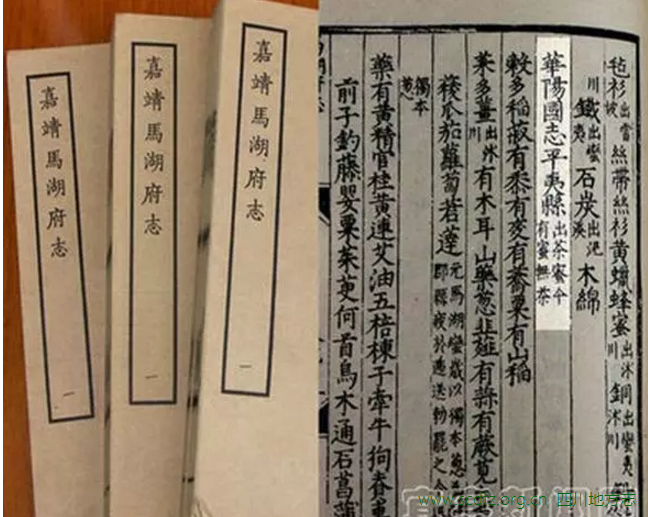 嘉靖馬湖府志
一
嘉靖馬湖府志
一
嘉靖馬湖府志
一
毡衫出雷坡絲帶絲衫黃蠟蜂蜜出沐川銅出蠻夷
川鐵出蠻夷石炭出泥溪木綿
華陽國志平夷縣出茶蜜今有蜜無茶
穀多稲菽有黍有麥有蕎粟有山稲
菜多薑出沐川有木耳山藥葱韭薤有蒜有蕨莧
瓜茄蘿蔔莙薘元馬湖蠻歲以獨本葱郡縣疲於遞送勅罷之今
獨本葱
藥有黃精官桂黃連艾油五棓楝子牽牛狗脊車
前子釣藤罌粟茱萸何首烏木通石菖蒲
四川地方志